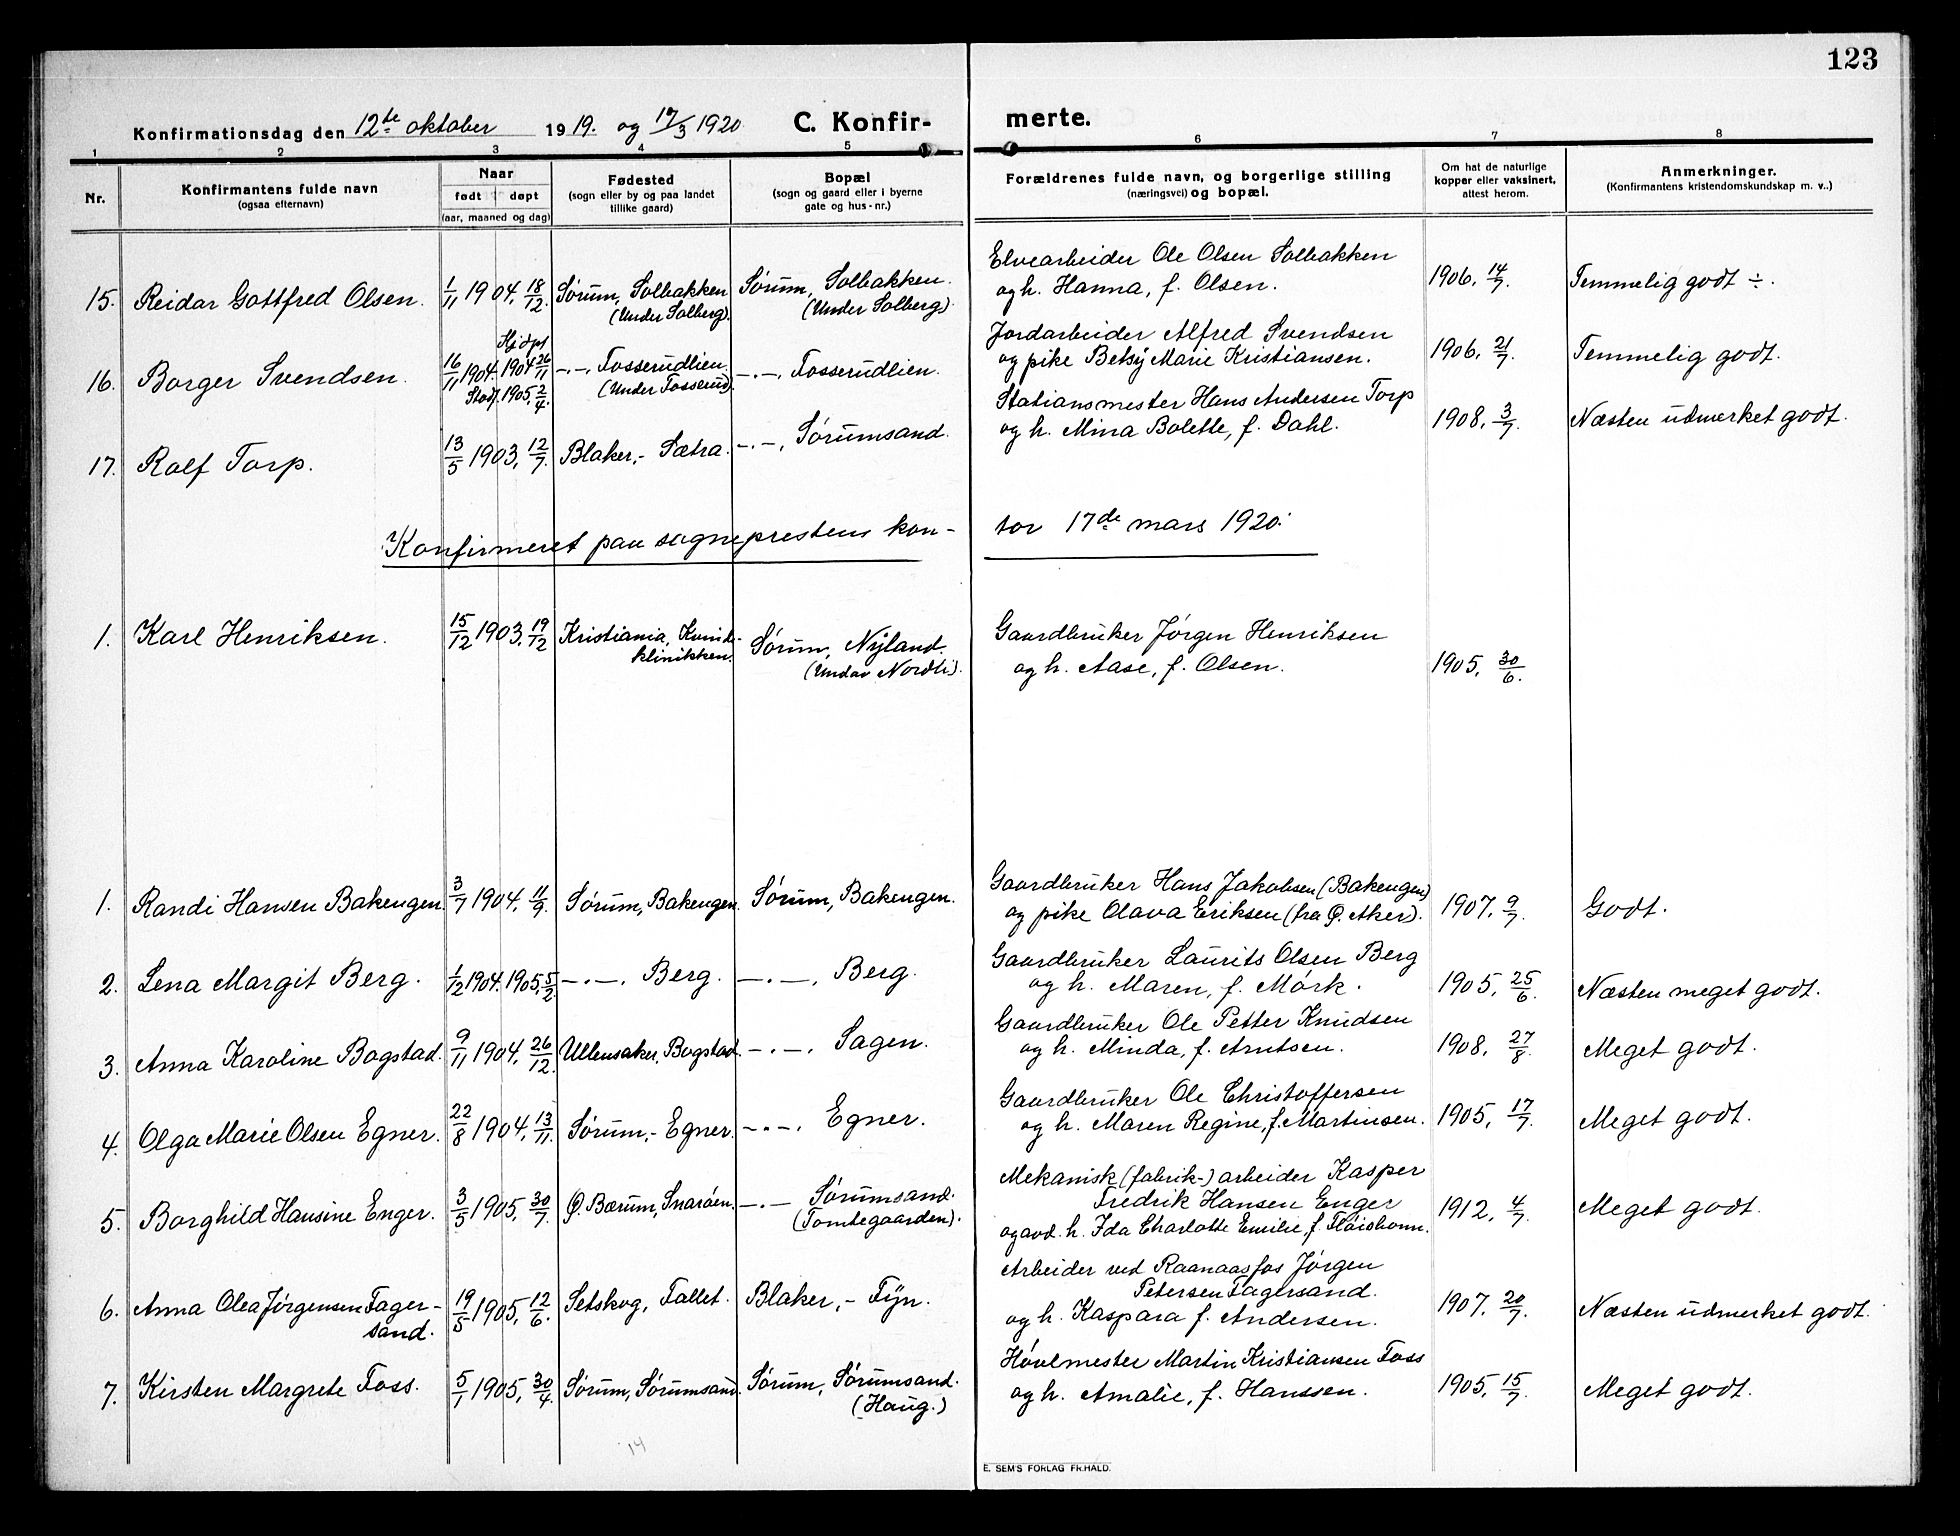 123
Konfirmationsdag den 12te oktober 1919. og 17/3 1920. C. Konfirmerte.
1 2 3 4 5 6 7 8
Nr.
Konfirmantens fulde navn
(ogsaa efternavn)
Naar
født døpt
(aar, maaned og dag)
Fødested
(sogn eller by og paa landet
tillike gaard)
Bopæl
(sogn og gaard eller i byerne
gate og hus-nr.)
Forældrenes fulde navn, og borgerlige stilling
(næringsvei) og bopæl.
Om hat de naturlige
kopper eller vaksinert,
attest herom.
Anmerkninger.
(Konfirmantens kristendomskundskap m. v..)
15. Reidar Gottfred Olsen. 1/11 1904. 18/12. Sørum, Solbakken (Under Solberg). Sørum, Solbakken. (Under Solberg).
Elvearbeider Ole Olsen Solbakken
og h. Hanna, f. Olsen. 1906. 14/7. Temmelig godt ÷.
16. Borger Svendsen. 16/11 1904. Hjdpt 1904 26/11 Stadf. 1905, 2/4. -"- Fosserudlien. (Under Fosserud). -"-, Fosserudlien.
Jordarbeider Alfred Svendsen
og pike Betsy Marie Kristiansen. 1906. 21/7. Temmelig godt.
17. Rolf Torp. 13/5 1903, 12/7. Blaker,- Sætra. -"-, Sørumsand.
Stationsmester Hans Andersen Torp
og h. Mina Bolette, f. Dahl. 1908. 3/7. Næsten udmerket godt.
Konfirmeret paa sogneprestens kontor 17de mars 1920.
1. Karl Henriksen. 15/12 1903. 19/12 Kristiania, Kvindeklinikken. Sørum, Nyland. (Under Nordli).
Gaardbruker Jørgen Henriksen
og h. Aase, f. Olsen. 1905. 30/6.
1. Randi Hansen Bakengen. 3/7 1904, 11/9. Sørum, Bakengen. Sørum, Bakengen.
Gaardbruker Hans Jakobsen (Bakengen)
og pike Olava Eriksen (fra Ø. Aker). 1907. 9/7. Godt.
2. Lena Margit Berg. 1/12 1904. 1905, 5/2 -"-. Berg. -"-, Berg.
Gaardbruker Laurits Olsen Berg
og h. Maren, f. Mørk. 1905. 25/6. Næsten meget godt.
3. Anna Karoline Bogstad. 9/11 1904, 26/12. Ullensaker, Bogstad. -"-, Sagen.
Gaardbruker Ole Petter Knudsen
og h. Minda, f. Arntsen. 1908. 27/8. Meget godt.
4. Olga Marie Olsen Egner. 22/8 1904, 13/11. Sørum,- Egner. -"-, Egner.
Gaardbruker Ole Christoffersen
og h. Maren Regine, f. Martinsen. 1905, 17/7. Meget godt.
5. Borghild Hansine Enger. 3/5 1905, 30/7. Ø. Bærum, Snarøen. -"- Sørumsand. (Tomtegaarden).
Mekanisk (fabrik-) arbeider Kasper
Fredrik Hansen Enger
og avd. h. Ida Charlotte Emilie, f. Fløishonn. 1912. 4/7. Meget godt.
6. Anna Olea Jørgensen Fagersand. 19/5 1905, 12/6. Setskog, Fallet. Blaker,- Fyn.
Arbeider ved Raanaasfos Jørgen
Petersen Fagersand.
og h. Kaspara f. Andersen. 1907. 20/7. Næsten udmerket godt.
7. Kirsten Margrete Foss. 5/1 1905, 30/4. Sørum, Sørumsand. Sørum, Sørumsand. (Haug.)
Høvlmester Martin Kristiansen Foss
og h. Amalie, f. Hanssen. 1905. 15/7. Meget godt.
14
E. SEM'S FORLAG FR.HALD.